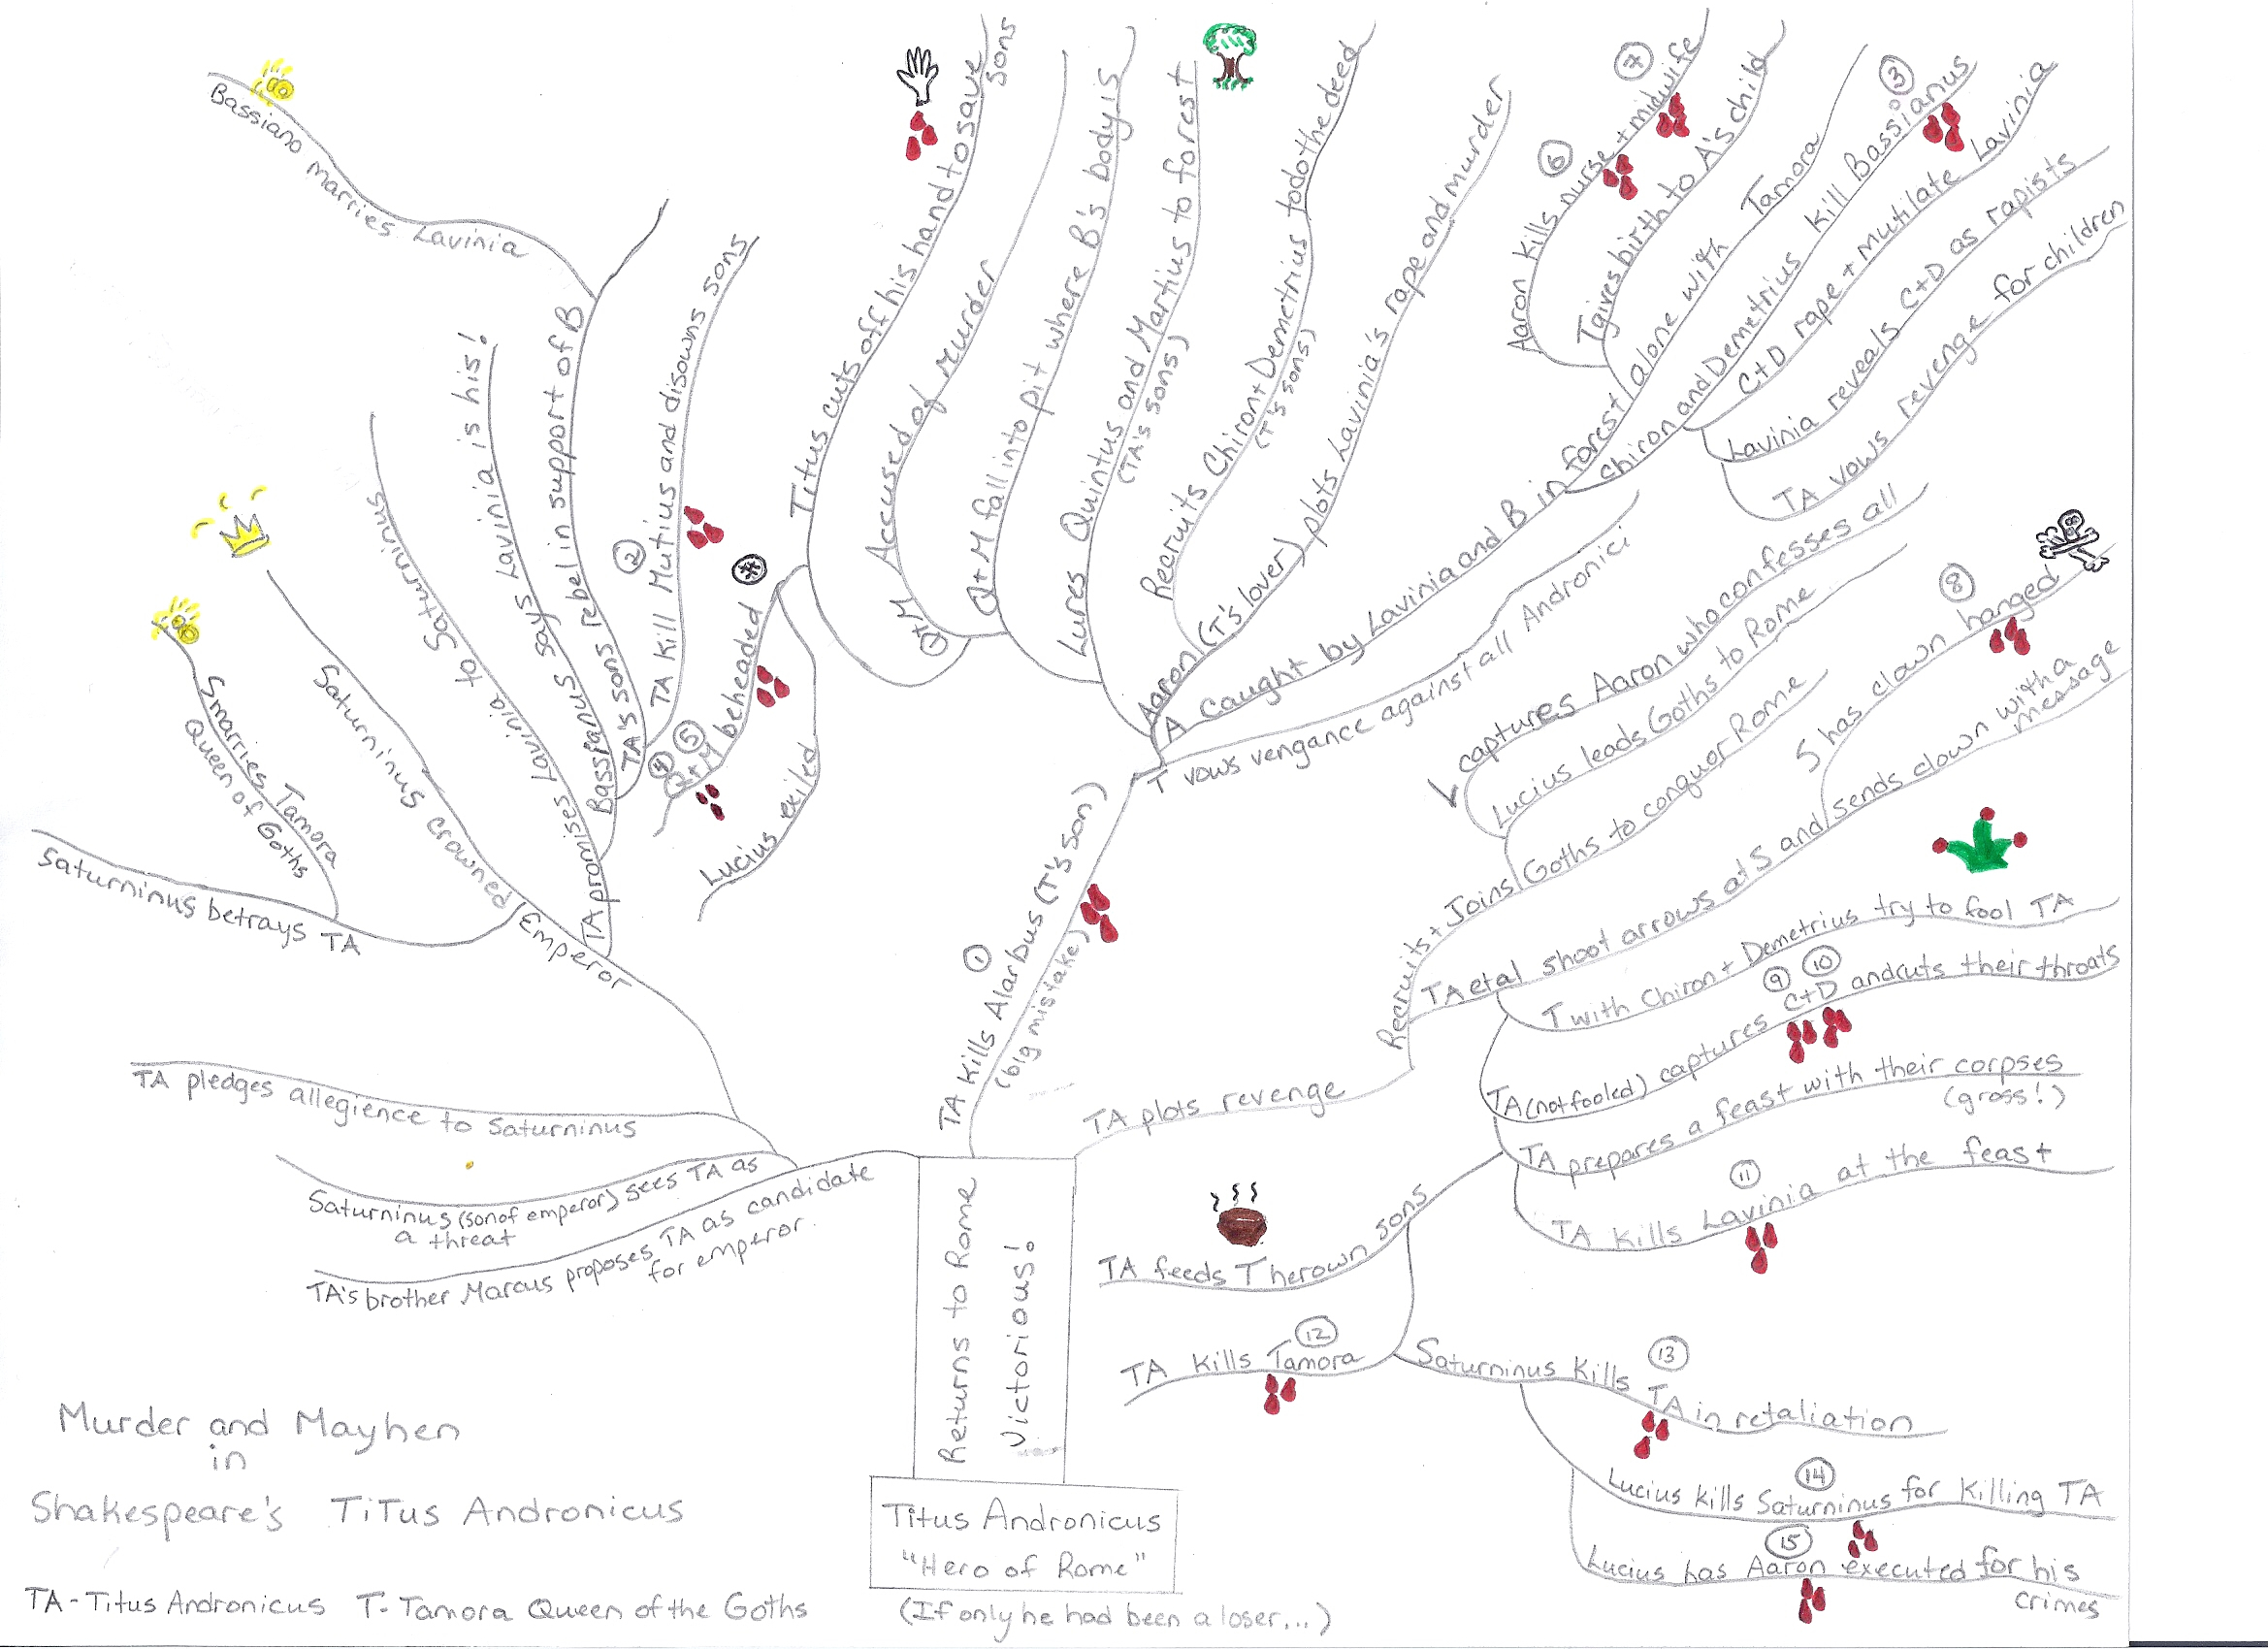 Bassiano marries Lavinia
Smarries Tamora
Queen of Goths
Saturninus betrays TA
Saturninus crowned Emperor
TA promises Lavinia to Saturninus
Bassianus says Lavinia is his!
TA's sons rebel in support of B
② TA kill Mutius and disowns sons
④ ⑤
Q+M beheaded
Lucius exiled
Titus cuts off his hand to save
sons
Q+M Accused of murder
Q+M fall into pit where B's body is
Lures Quintus and Martius to forest
(TA's sons)
Recruits Chiron+Demetrius to do the deed
(T's sons)
Aaron (T's lover) plots Lavinia's rape and murder
⑥ ⑦
Aaron kills nurse + midwife
T gives birth to A's child
A caught by Lavinia and B in forest alone with Tamora
③
Chiron and Demetrius kill Bassianus
C+D rape + mutilate Lavinia
Lavinia reveals C+D as rapists
TA vows revenge for children
T vows vengance against all Andronici
① TA kills Alarbus (T's son)
(big mistake)
L captures Aaron who confesses all
Lucius leads Goths to Rome
Recruits + Joins Goths to conquor Rome
⑧
S has clown hanged
TA etal shoot arrows at S and sends clown with a
message
T with Chiron + Demetrius try to fool TA
⑨ ⑩
TA (not fooled) captures C+D and cuts their throats
TA prepares a feast with their corpses
(gross!)
⑪
TA kills Lavinia at the feast
TA plots revenge
TA feeds T her own sons
⑫
TA kills Tamora
⑬
Saturninus kills TA in retaliation
⑭
Lucius kills Saturninus for killing TA
⑮
Lucius has Aaron executed for his
crimes
TA pledges allegience to Saturninus
Saturninus (son of emperor) sees TA as
a threat
TA's brother Marcus proposes TA as candidate
for emperor.
Returns to Rome
Victorious!
Titus Andronicus
"Hero of Rome"
(If only he had been a loser...)
Murder and Mayhen
in
Shakespeare's TiTus Andronicus
TA - Titus Andronicus T - Tamora Queen of the Goths